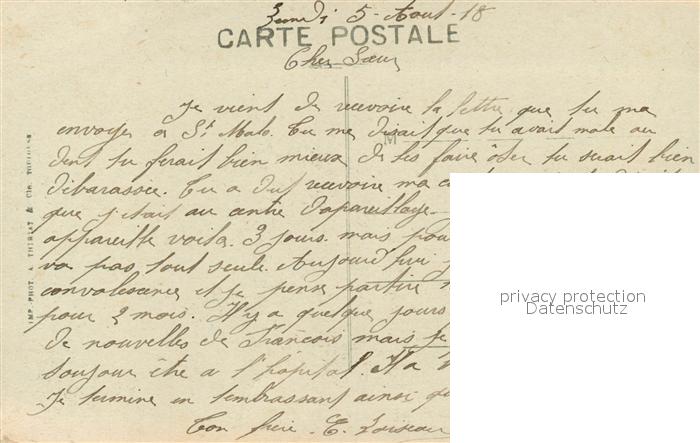 Lundi 5 Aout 18
CARTE POSTALE
Cher Sœur
Je vient de recevoire la lettre que tu ma
envoyé a St Malo. Tu me disait que tu avait male au
dent tu ferait bien mieux de les faire ôter tu serait bien
débarassée. Tu a dut recevoire ma
que j'étais au centre d'apareillage
appareille voila 3 jours. mais pou
va pas tout seule. Aujourd'hui
convalescence et je pense partire
pour 2 mois. Il y a quelque jours
de nouvelles de François mais je
toujour être a l'hôpital. Il a
Je termine en t'embrassant ainsi qu
Ton frère E. Loiseau
IMP.-PHOT. A. THIRIAT & Cie. TOULOUSE
M
privacy protection
Datenschutz